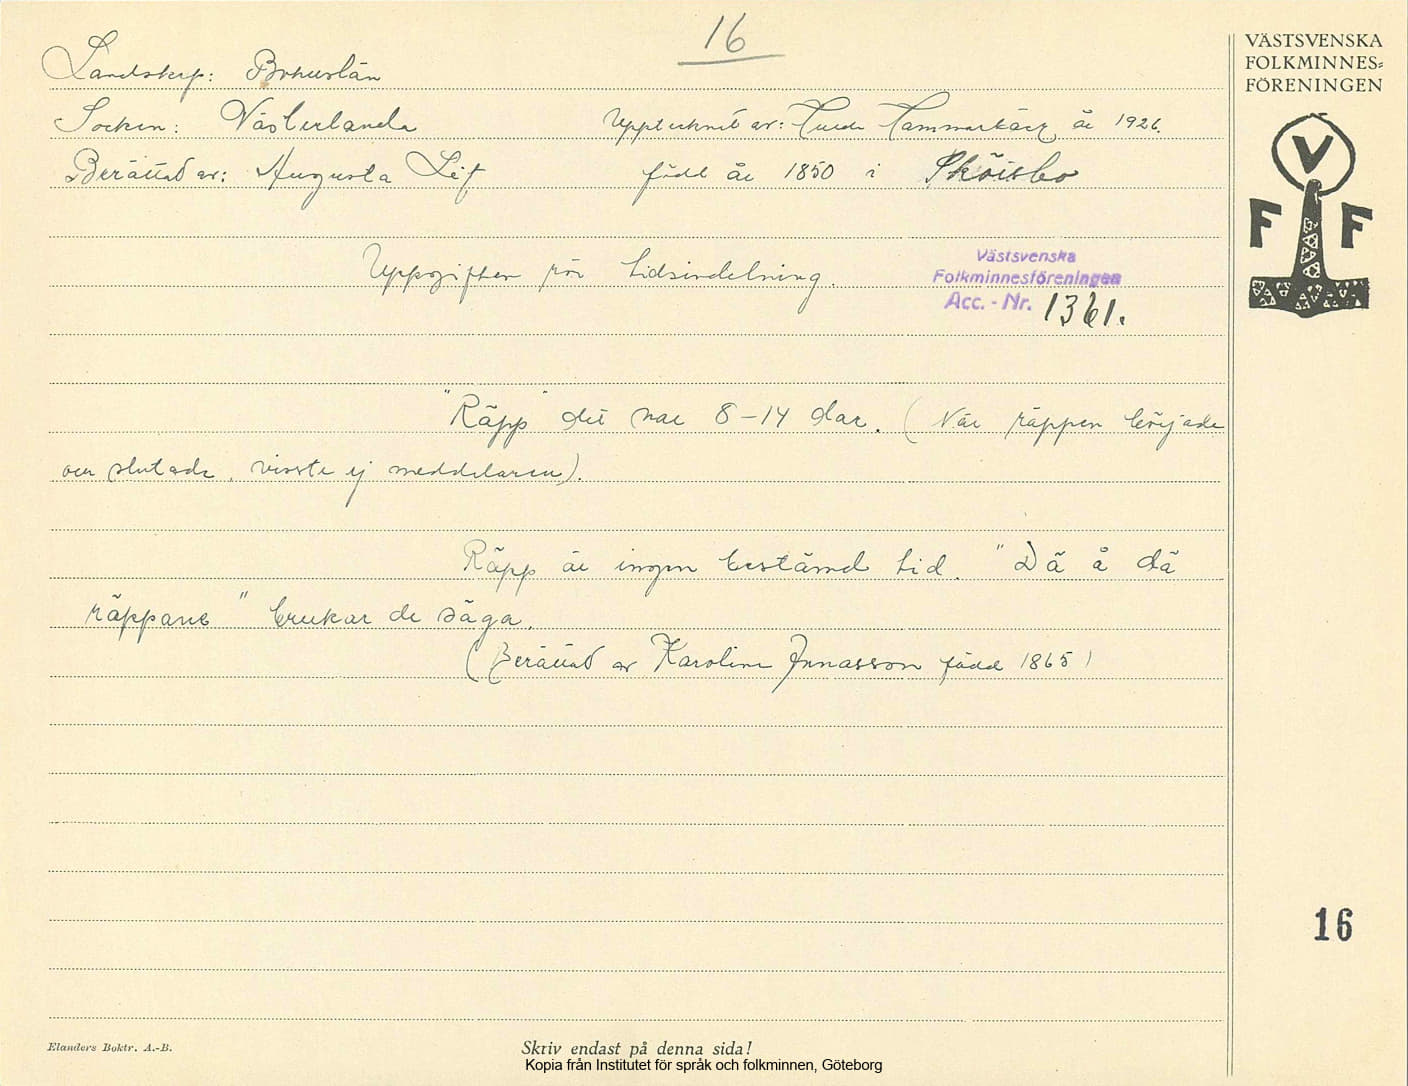 16
VÄSTSVENSKA
FOLKMINNES-
FÖRENINGEN
Landskap: Bohuslän
Socken: Västerlanda Upptecknat av: Hammarbäck år 1926.
Berättad av: Augusta Leif född år 1850 i
V
F F
Uppgifter rör tidsindelning.
Västsvenska
Folkminnesföreningen
Acc. - Nr. 1361.
"Räpp" det var 8–14 dar. (När räppen började
och slutade, visste ej meddelaren).
Räpp är ingen bestämd tid. "Dä å dä
räppane" brukar de säga.
(Berättad av Karolina Jonasson född 1865)
16
Elanders Boktr. A.-B.
Skriv endast på denna sida!
Kopia från Institutet för språk och folkminnen, Göteborg